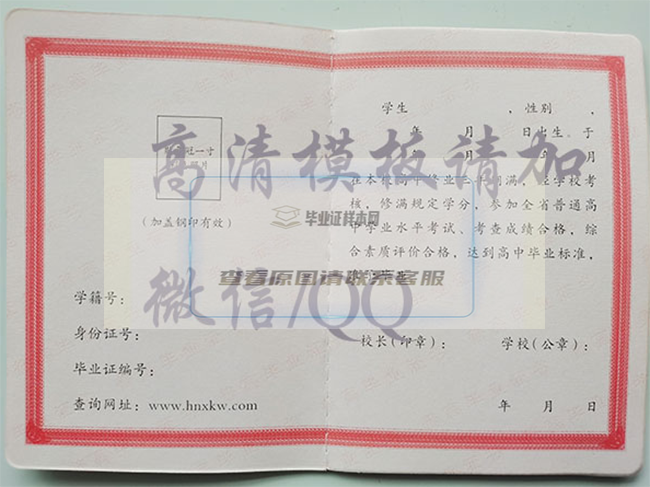 冠一寸
照片
(加盖钢印有效)
学籍号：
身份证号：
毕业证编号：
查询网址：www.hnxkw.com
学生 ，性别 ，
年 月 日出生。于
年 月 年 月
在本校高中修业三年期满，经学校考
核，修满规定学分，参加全省普通高
中学业水平考试、考查成绩合格，综
合素质评价合格，达到高中毕业标准，
校长(印章)： 学校(公章)：
年 月 日
高清模板请加
微信/QQ
毕业证样本网
查看原图请联系客服